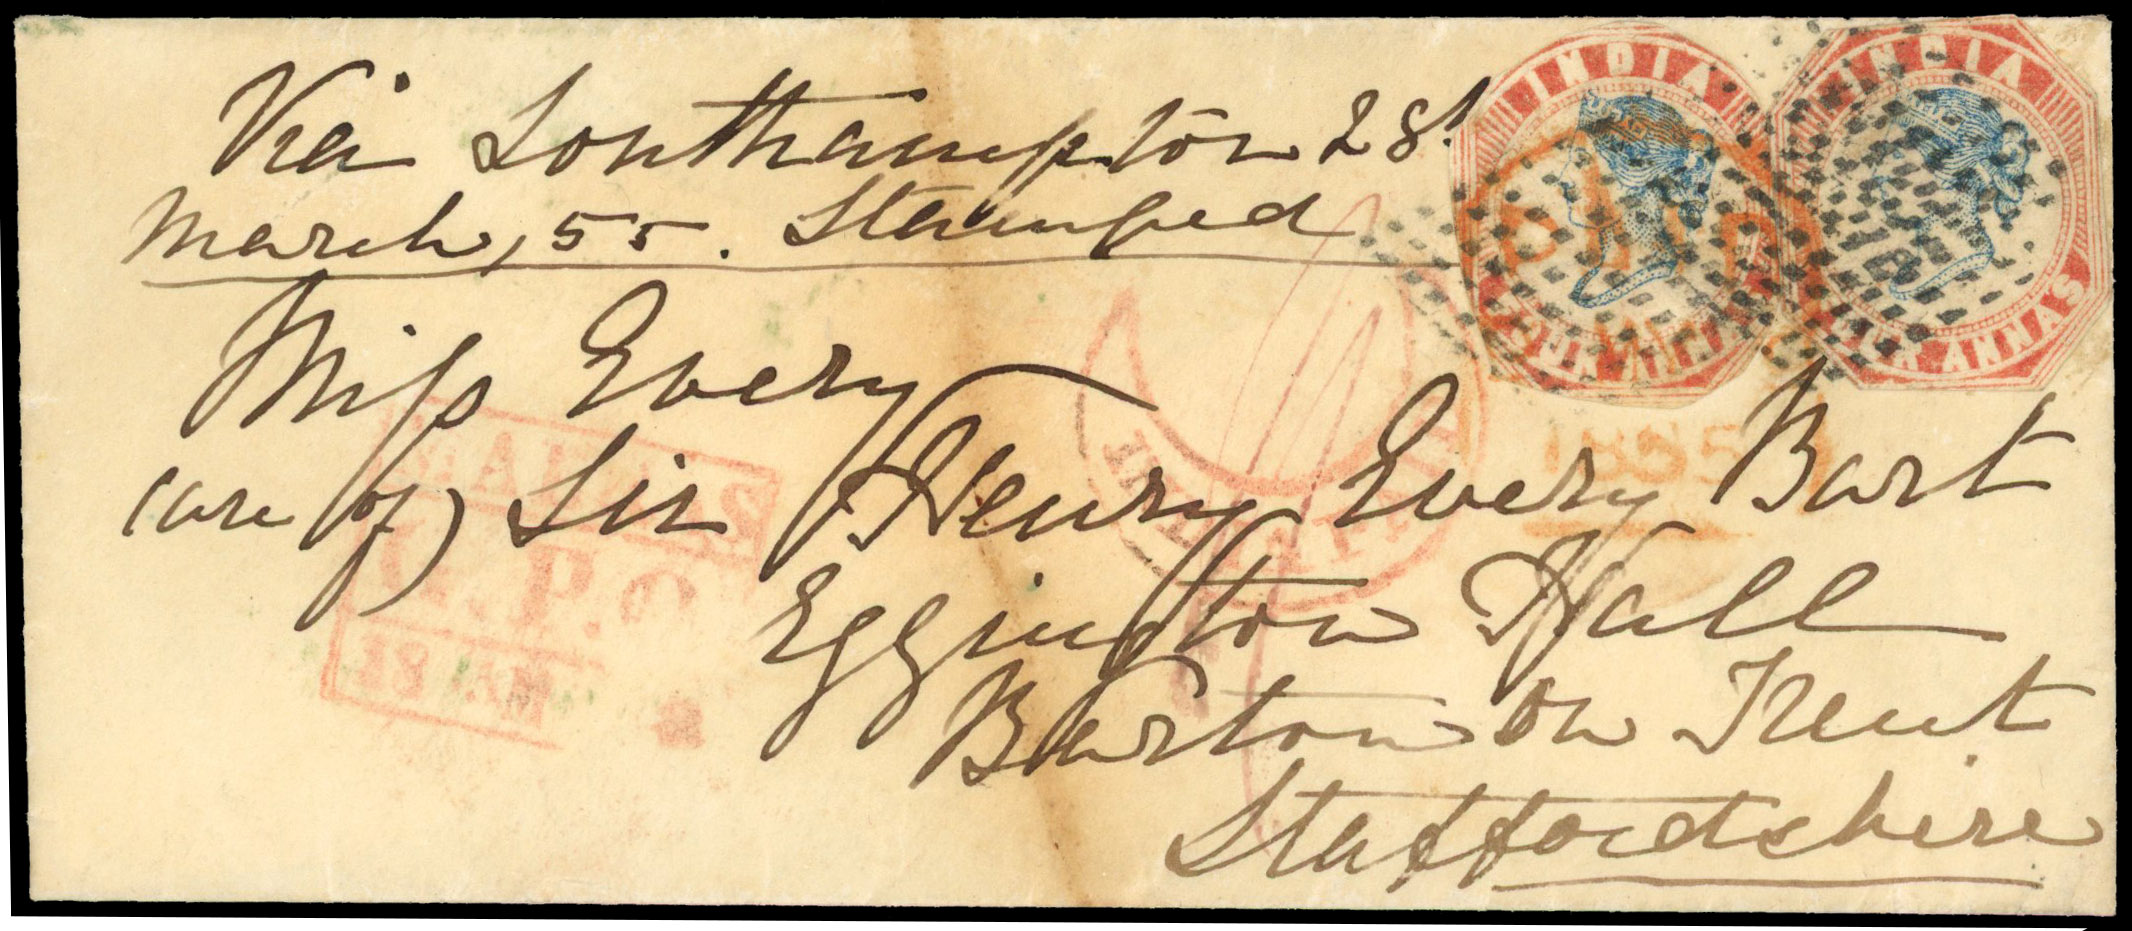 Via Southampton 28t
March, 55. Stamped
Miss Every
care of) Sir Henry Every Bart
Eggington Hall
Burton on Trent
Staffordshire
INDIA
FOUR ANNAS
INDIA
FOUR ANNAS
PAID
1855
INDIA PAID
G.P.O.